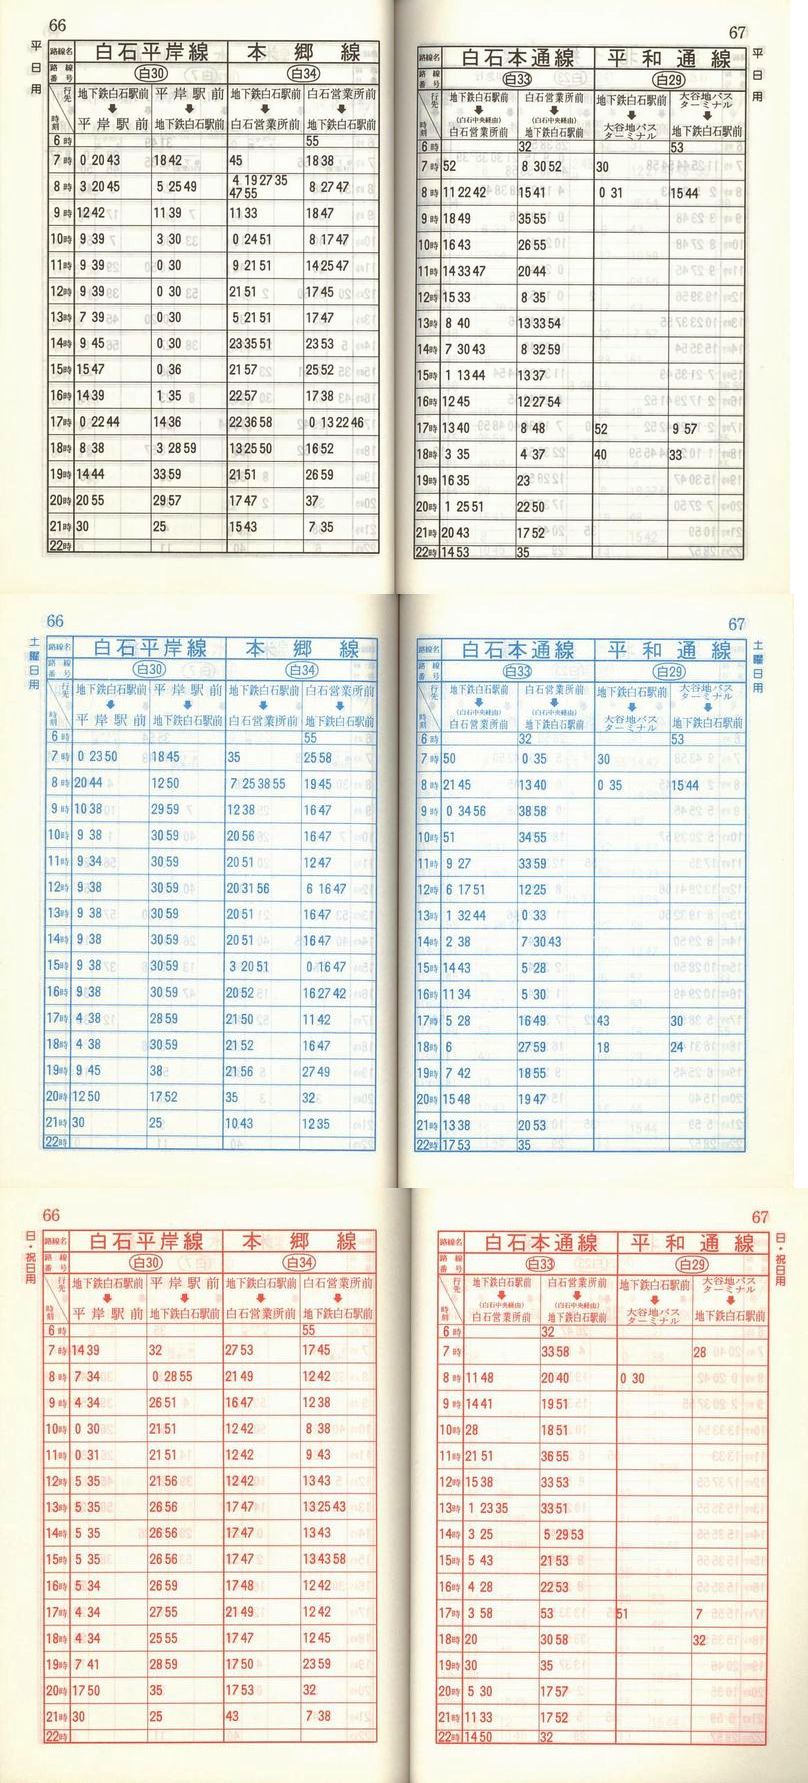 66
平日用
路線名 白石平岸線 本郷線
路線番号 白30 白34
行先 地下鉄白石駅前 平岸駅前 地下鉄白石駅前 白石営業所前
時刻 平岸駅前 地下鉄白石駅前 白石営業所前 地下鉄白石駅前
6時 55
7時 0 20 43 18 42 45 18 38
8時 3 20 45 5 25 49 4 19 27 35 8 27 47
47 55
9時 12 42 11 39 11 33 18 47
10時 9 39 3 30 0 24 51 8 17 47
11時 9 39 0 30 9 21 51 14 25 47
12時 9 39 0 30 21 51 17 45
13時 7 39 0 30 5 21 51 17 47
14時 9 45 0 30 23 35 51 23 53
15時 15 47 0 36 21 57 25 52
16時 14 39 1 35 22 57 17 38
17時 0 22 44 14 36 22 36 58 0 13 22 46
18時 8 38 3 28 59 13 25 50 16 52
19時 14 44 33 59 21 51 26 59
20時 20 55 29 57 17 47 37
21時 30 25 15 43 7 35
22時
67
平日用
路線名 白石本通線 平和通線
路線番号 白33 白29
行先 地下鉄白石駅前 白石営業所前 地下鉄白石駅前 大谷地バスターミナル
(白石中央経由) (白石中央経由)
時刻 白石営業所前 地下鉄白石駅前 大谷地バスターミナル 地下鉄白石駅前
6時 32 53
7時 52 8 30 52 30
8時 11 22 42 15 41 0 31 15 44
9時 18 49 35 55
10時 16 43 26 55
11時 14 33 47 20 44
12時 15 33 8 35
13時 8 40 13 33 54
14時 7 30 43 8 32 59
15時 1 13 44 13 37
16時 12 45 12 27 54
17時 13 40 8 48 52 9 57
18時 3 35 4 37 40 33
19時 16 35 23
20時 1 25 51 22 50
21時 20 43 17 52
22時 14 53 35
66
土曜日用
路線名 白石平岸線 本郷線
路線番号 白30 白34
行先 地下鉄白石駅前 平岸駅前 地下鉄白石駅前 白石営業所前
時刻 平岸駅前 地下鉄白石駅前 白石営業所前 地下鉄白石駅前
6時 55
7時 0 23 50 18 45 35 25 58
8時 20 44 12 50 7 25 38 55 19 45
9時 10 38 29 59 12 38 16 47
10時 9 38 30 59 20 56 16 47
11時 9 34 30 59 20 51 12 47
12時 9 38 30 59 20 31 56 6 16 47
13時 9 38 30 59 20 51 16 47
14時 9 38 30 59 20 51 16 47
15時 9 38 30 59 3 20 51 0 16 47
16時 9 38 30 59 20 52 16 27 42
17時 4 38 28 59 21 50 11 42
18時 4 38 30 59 21 52 16 47
19時 9 45 38 21 56 27 49
20時 12 50 17 52 35 32
21時 30 25 10 43 12 35
22時
67
土曜日用
路線名 白石本通線 平和通線
路線番号 白33 白29
行先 地下鉄白石駅前 白石営業所前 地下鉄白石駅前 大谷地バスターミナル
(白石中央経由) (白石中央経由)
時刻 白石営業所前 地下鉄白石駅前 大谷地バスターミナル 地下鉄白石駅前
6時 32 53
7時 50 0 35 30
8時 21 45 13 40 0 35 15 44
9時 0 34 56 38 58
10時 51 34 55
11時 9 27 33 59
12時 6 17 51 12 25
13時 1 32 44 0 33
14時 2 38 7 30 43
15時 14 43 5 28
16時 11 34 5 30
17時 5 28 16 49 43 30
18時 6 27 59 18 24
19時 7 42 18 55
20時 15 48 19 47
21時 13 38 20 53
22時 17 53 35
66
日・祝日用
路線名 白石平岸線 本郷線
路線番号 白30 白34
行先 地下鉄白石駅前 平岸駅前 地下鉄白石駅前 白石営業所前
時刻 平岸駅前 地下鉄白石駅前 白石営業所前 地下鉄白石駅前
6時 55
7時 14 39 32 27 53 17 45
8時 7 34 0 28 55 21 49 12 42
9時 4 34 26 51 16 47 12 38
10時 0 30 21 51 12 42 8 38
11時 0 31 21 51 12 42 9 43
12時 5 35 21 56 12 42 13 43
13時 5 35 26 56 17 47 13 25 43
14時 5 35 26 56 17 47 13 43
15時 5 35 26 56 17 47 13 43 58
16時 5 34 26 59 17 48 12 42
17時 4 34 27 55 21 49 12 42
18時 4 34 25 55 17 47 12 45
19時 7 41 28 59 17 50 23 59
20時 17 50 35 17 53 32
21時 30 25 43 7 38
22時
67
日・祝日用
路線名 白石本通線 平和通線
路線番号 白33 白29
行先 地下鉄白石駅前 白石営業所前 地下鉄白石駅前 大谷地バスターミナル
(白石中央経由) (白石中央経由)
時刻 白石営業所前 地下鉄白石駅前 大谷地バスターミナル 地下鉄白石駅前
6時 32
7時 33 58 28
8時 11 48 20 40 0 30
9時 14 41 19 51
10時 28 18 51
11時 21 51 36 55
12時 15 38 33 53
13時 1 23 35 33 51
14時 3 25 5 29 53
15時 5 43 21 53
16時 4 28 22 53
17時 3 58 53 51 7
18時 20 30 58 32
19時 30 35
20時 5 30 17 57
21時 11 33 17 52
22時 14 50 32